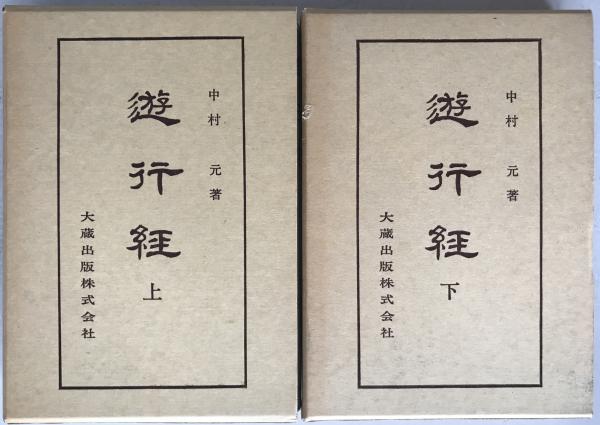 中村 元著
遊行經
上
大蔵出版株式会社
中村 元著
遊行經
下
大蔵出版株式会社